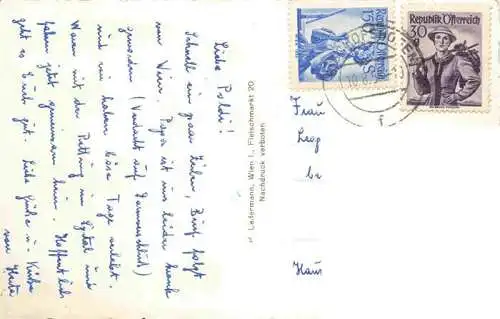 Liebe Poldi!
Schnell ein paar Zeilen, Brief folgt
von Wien. Papa ist uns leider krank
geworden (Verdacht auf Darmverschluß)
und wir haben böse Tage erlebt.
Waren mit der Rettung im Spital und
fahren jetzt gemeinsam heim. Hoffentlich
geht es Euch gut. Liebe Grüße u. Küsse
von Herta
W. Ledermann, Wien I., Fleischmarkt 20
Nachdruck verboten
Republik Österreich
30
Republik Österreich
1 S
Frau
Leop
be
Haus